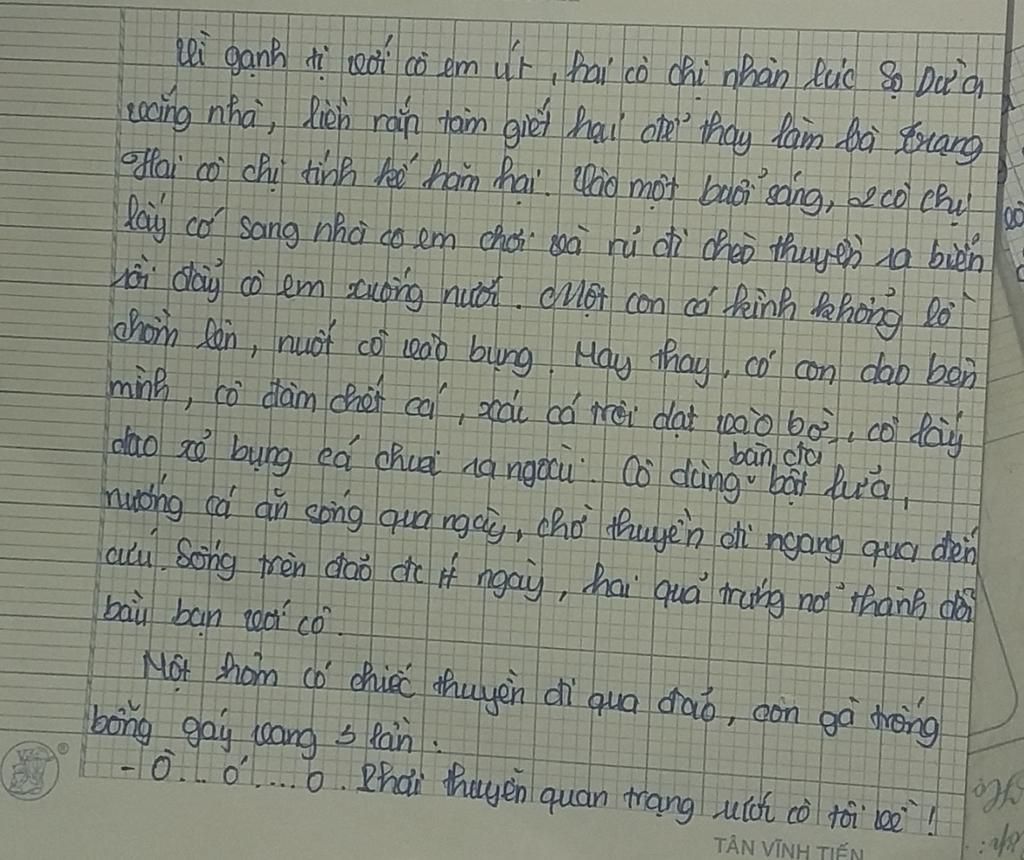 Vì ganh tị với cô em út, hai cô chị nhân lúc Sọ Dừa
vắng nhà, liền rắp tâm giết hại để thay làm bà trạng
Hai cô chị tính kế hãm hại. Vào một buổi sáng, 2 cô chị
lấy cớ sang nhà cô em chơi và rủ đi chèo thuyền ra biển
rồi đẩy cô em xuống nước. Một con cá kình khổng lồ
chồm lên, nuốt cô vào bụng. May thay, có con dao bên
mình, cô đâm chết cá, xác cá trôi dạt vào bờ, cô lấy
dao xẻ bụng cá chui ra ngoài. Cô dùng bật lửa,
bàn, đá
nướng cá ăn sống qua ngày, chờ thuyền đi ngang qua đến
cứu. Sống trên đảo đc ít ngày, hai quả trứng nở thành đôi
bầu bạn với cô.
Một hôm có chiếc thuyền đi qua đảo, con gà trống
bỗng gáy vang 3 lần:
- Ò... ó.... o. Phải thuyền quan trạng rước cô tôi về!
TÂN VĨNH TIẾN